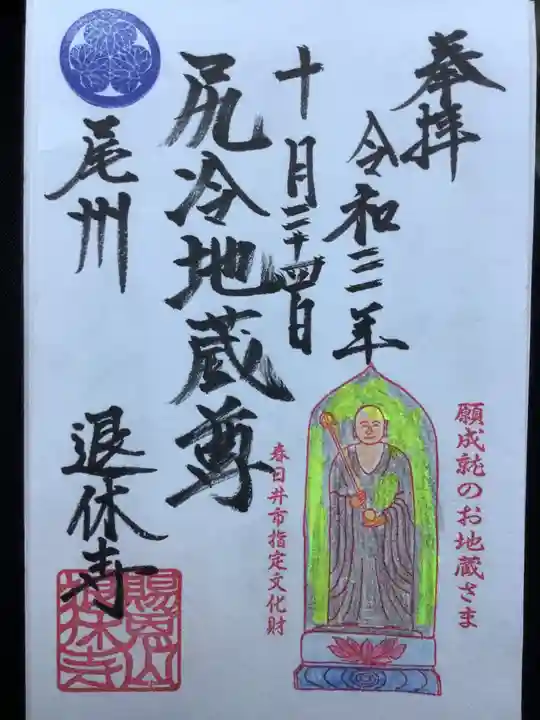 奉拝
令和三年
十月二十四日
尻冷地蔵尊
尾州
退休寺
願成就のお地蔵さま
春日井市指定文化財
賜恩山
退休寺